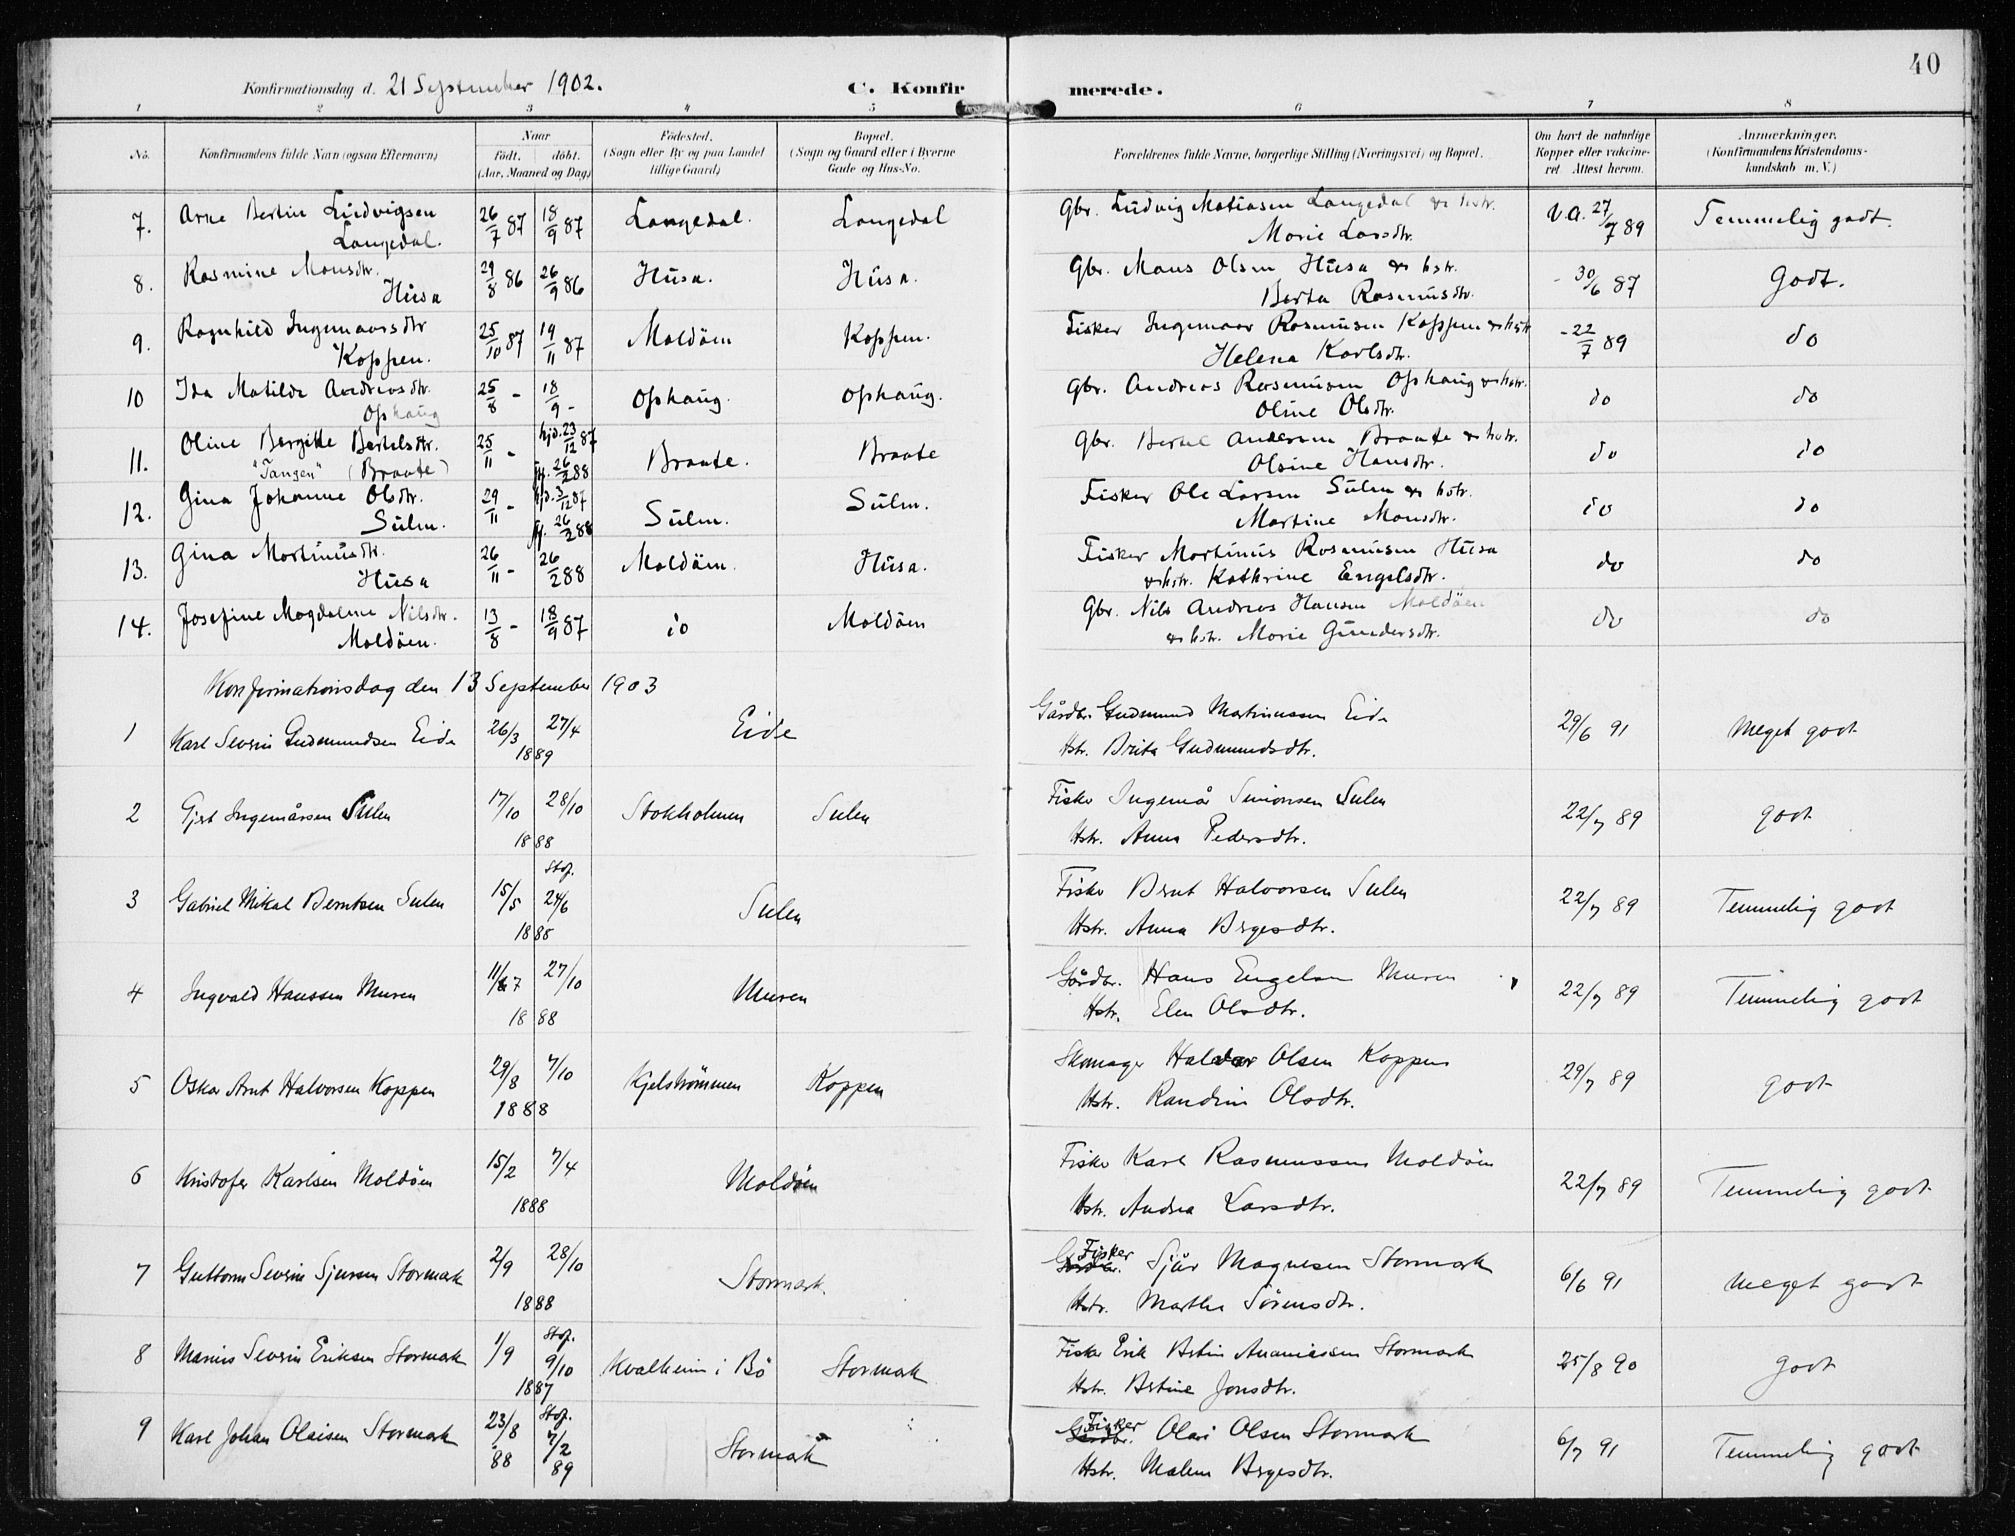 40
Konfirmationsdag d. 21 September 1902. C. Konfirmerede.
1 2 3 4 5 6 7 8
No. Konfirmandens fulde Navn (ogsaa Efternavn) Naar født. døbt. (Aar, Maaned og Dag) Fødested. (Sogn eller By og paa Landet tillige Gaard) Bopæl. (Sogn og Gaard eller i Byerne Gade og Hus-No. Forældrenes fulde Navne, borgerlige Stilling (Næringsvei) og Bopæl. Om havt de naturlige Kopper eller vakcineret. Attest herom. Anmærkninger. (Konfirmandens Kristendomskundskab m. V.)
7. Arne Bertin Ludvigsen Langedal. 26/7 87 18/9 87 Langedal. Langedal Gbr. Ludvig Matiasen Langedal & hstr. Marie Larsdtr. v.a. 27/7 89 Temmelig godt.
8. Rasmine Monsdtr. Husa 29/8 86 26/9 86 Husa. Husa. Gbr. Mons Olsen Husa & hstr. Berta Rasmusdtr. - 30/6 87 Godt.
9. Ragnhild Ingemaarsdtr Koppen. 25/10 87 19/11 87 Moldöen Koppen. Fisker Ingemaar Rasmusen Koppen & hstr Helena Karlsdtr. - 22/7 89 do
10 Ida Matilde Andreasdtr. Ophaug 25/8 - 18/9 - Ophaug. Ophaug. Gbr. Andreas Rasmusen Ophaug & hstr. Oline Olsdtr. do do
11. Oline Bergitte Bertelsdtr. "Tangen" (Braate) 25/11 - hjd. 23/12 87 fr. 26/2 88 Braate. Braate Gbr. Bertel Andersen Braate & hstr. Olsine Hansdtr. do do
12. Gina Johanne Olsdtr. Sulen. 29/11 - hjd. 3/12 87 fr. 26/2 88 Sulen. Sulen. Fisker Ole Larsen Sulen & hstr. Martine Monsdtr. do do
13. Gina Martinusdtr. Husa 26/11 - 26/2 88 Moldöen. Husa. Fisker Martinus Rasmusen Husa & hstr. Kathrine Engelsdtr. do do
14. Josefine Magdalene Nilsdtr. Moldöen. 13/8 - 18/9 87 do Moldöen Gbr. Nils Andreas Hansen Moldöen & hstr. Marie Gundersdtr. do do
Konfirmationsdag den 13 September 1903
1 Karl Severin Gudmundsen Eide 26/3 27/4 1889 Eide Gårdbr. Gudmund Martinussen Eide Hstr. Brita Gudmundsdtr. 29/6 91 Meget godt
2 Gjert Ingemårsen Sulen 17/10 28/10 1888 Stokholmen Sulen Fisker Ingemår Simonsen Sulen Hstr. Anna Pedersdtr. 22/7 89 godt
3 Gabriel Mikal Berntsen Sulen 15/5 Stof. 24/6 1888 Sulen Fisker Bernt Halvorsen Sulen Hstr. Anna Bergesdtr. 22/7 89 Temmelig godt
4 Ingvald Hanssen Muren 11/7 27/10 1888 Muren Gårdbr. Hans Engelsen Muren Hstr. Elen Olsdtr. 22/7 89 Temmelig godt
5 Oskar Arnt Halvorsen Koppen 29/8 7/10 1888 Kjelströmmen Koppen Skomager Halvor Olsen Koppen Hstr. Randine Olsdtr. 29/7 89 godt
6 Kristofer Karlsen Moldöen 15/2 7/4 1888 Moldöen Fisker Karl Rasmussen Moldöen Hstr. Andrea Larsdtr. 22/7 89 Temmelig godt
7 Guttorm Severin Sjursen Stormark 2/9 28/10 1888 Stormark. Gårdbr. Fisker Sjur Magnesen Stormark Hstr. Marthe Sörensdtr. 6/6 91 Meget godt
8 Marius Severin Eriksen Stormark 1/9 Stof. 9/10 1887 Kvalheim i Bö Stormark Fisker Erik Bertin Ananiassen Stormark Hstr. Bertine Jonsdtr. 25/8 90 godt
9 Karl Johan Olaisen Stormark 23/8 88 Stof. 7/2 89 Stormark Gårdbr. Fisker Olai Olsen Stormark Hstr. Malene Bergesdtr. 6/7 91 Temmelig godt